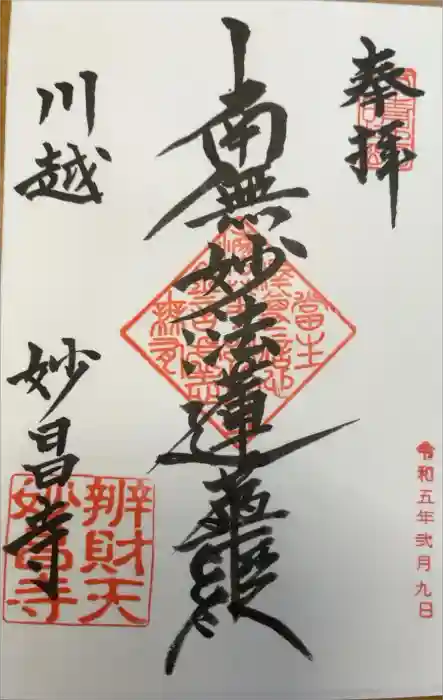 奉拝
南無妙法蓮華経
川越
妙昌寺
辨財天
妙昌寺
令和五年弐月九日